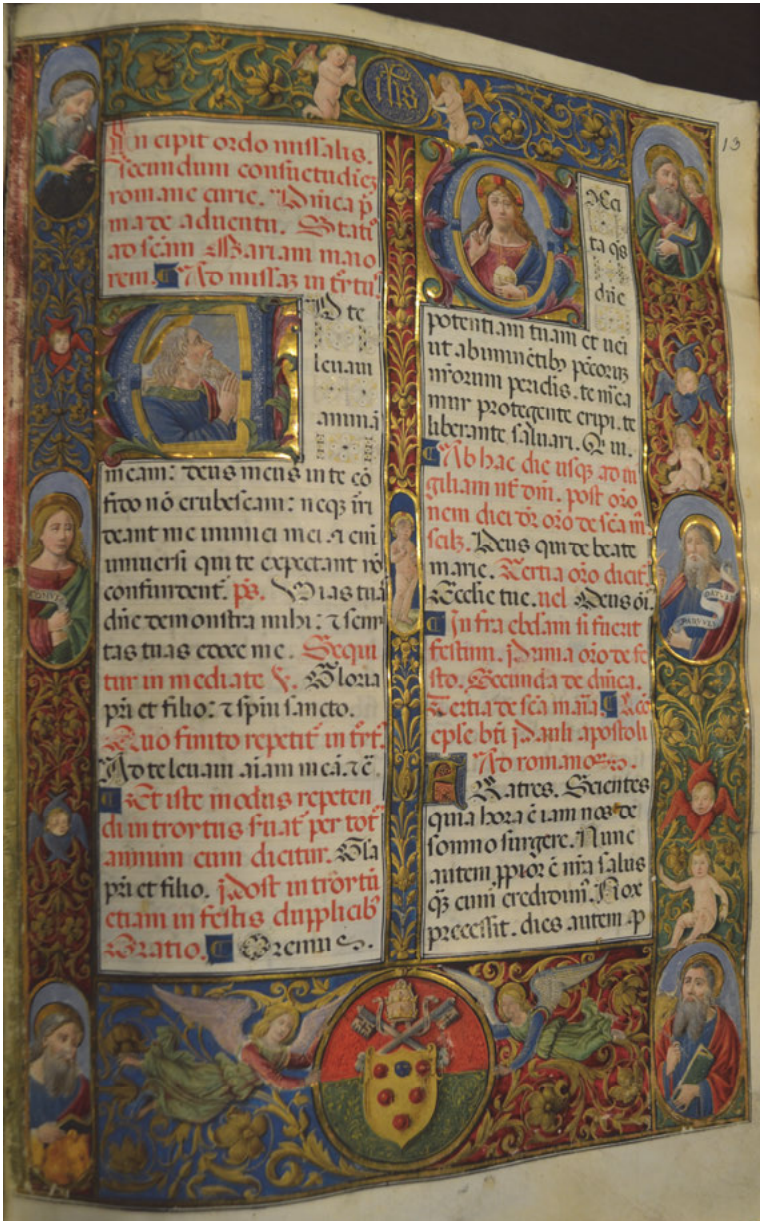 Incipit ordo missalis.
secundum consuetudinez
romane curie. Dnica p
ma de adventu. Statio
ad scam Mariam maio
rem. Ad missaz introitus
AD te
levavi
animā
meam: deus meus in te cō
fido nō erubescam: neqz irri
deant me inimici mei. et eni
universi qui te expectant nō
confundent. ps. Vias tuas
dne demonstra mihi: et semi
tas tuas edoce me. Sequi
tur inmediate V. Gloria
pri et filio: et spiri sancto.
Quo finito repetit introit.
Ad te levavi aiam meā. et c.
Et iste modus repeten
di introitus fuat per tot
annum cum dicitur. Gla
pri et filio. Post introitū
etiam in festis dupplicib
Oratio. Oremus.
EXci
ta qs
dne
potentiam tuam et veni
ut ab iminētibz pccoruz
nrorum periclis. te merea
mur protegente eripi. te
liberante salvari. Qui.
Ab hac die usqz ad vi
giliam nt dni. post oro
nem diei dr oro de sca m
scilz. Deus qui de beate
marie. Tertia oro dicit.
Ecclie tue. vel Deus oi.
Infra ebdam si fuerit
festum. Prima oro de fe
sto. Secunda de dnica.
Tertia de sca maria. Lec
epse bti Pauli apostoli
Ad romanos.
FRatres. Scientes
quia hora ē iam nos de
somno surgere. Nunc
autem ppior ē nra salus
qz cum credidim. Nox
precessit. dies autem ap
ihs
13